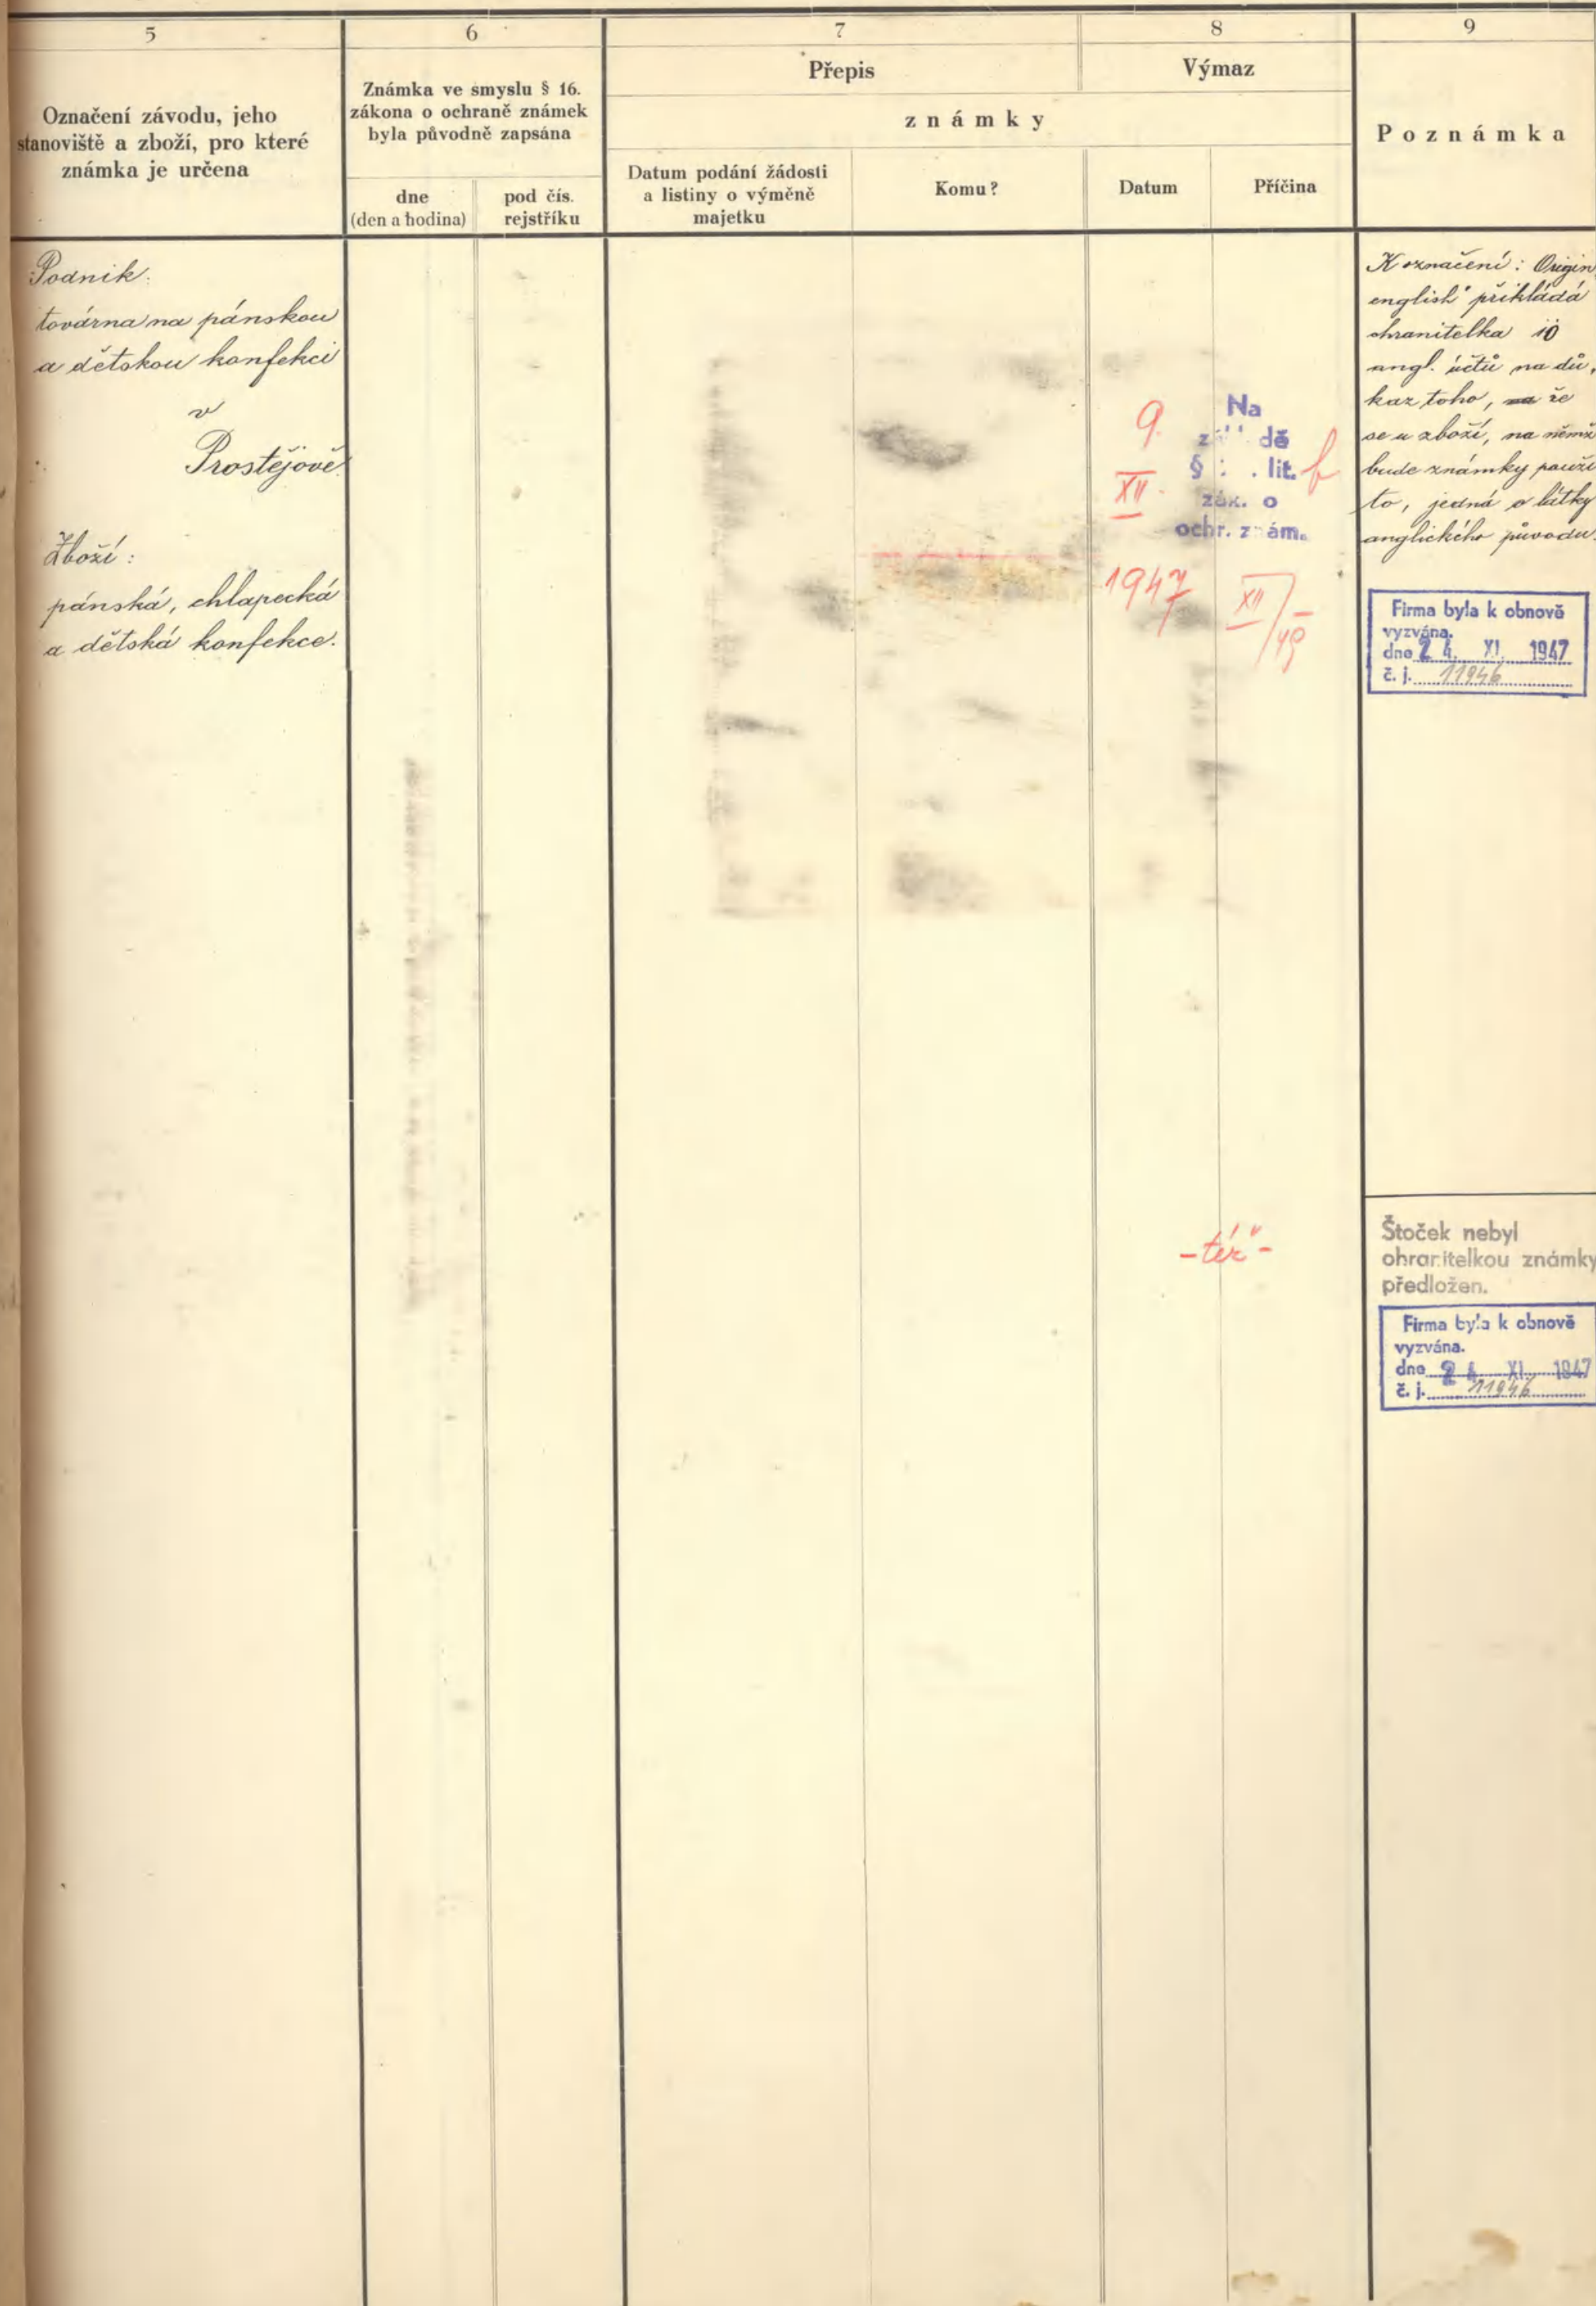 5
6
7
8
9
Označení závodu, jeho
stanoviště a zboží, pro které
známka je určena
Známka ve smyslu § 16.
zákona o ochraně známek
byla původně zapsána
dne
(den a hodina)
pod čís.
rejstříku
Přepis
Výmaz
známky
Datum podání žádosti
a listiny o výměně
majetku
Komu?
Datum
Příčina
Poznámka
Podnik:
továrna na pánskou
a dětskou konfekci
v
Prostějově.
Zboží:
pánská, chlapecká
a dětská konfekce.
9.
XII.
1947
Na
dě
§ lit.
zák. o
ochr. znám.
XII/
K označení: Origin
english" přikládá
chranitelka 10
angl. účtů na dů,
kaz toho, že
se u zboží, na němž
bude známky použi
to, jedná o látky
anglického původu.
Firma byla k obnově
vyzvána.
dne 24. XI. 1947
č. j. 11946
-též-
Štoček nebyl
ohranitelkou známky
předložen.
Firma byla k obnově
vyzvána.
dne 24 XI. 1947
č. j. 11946